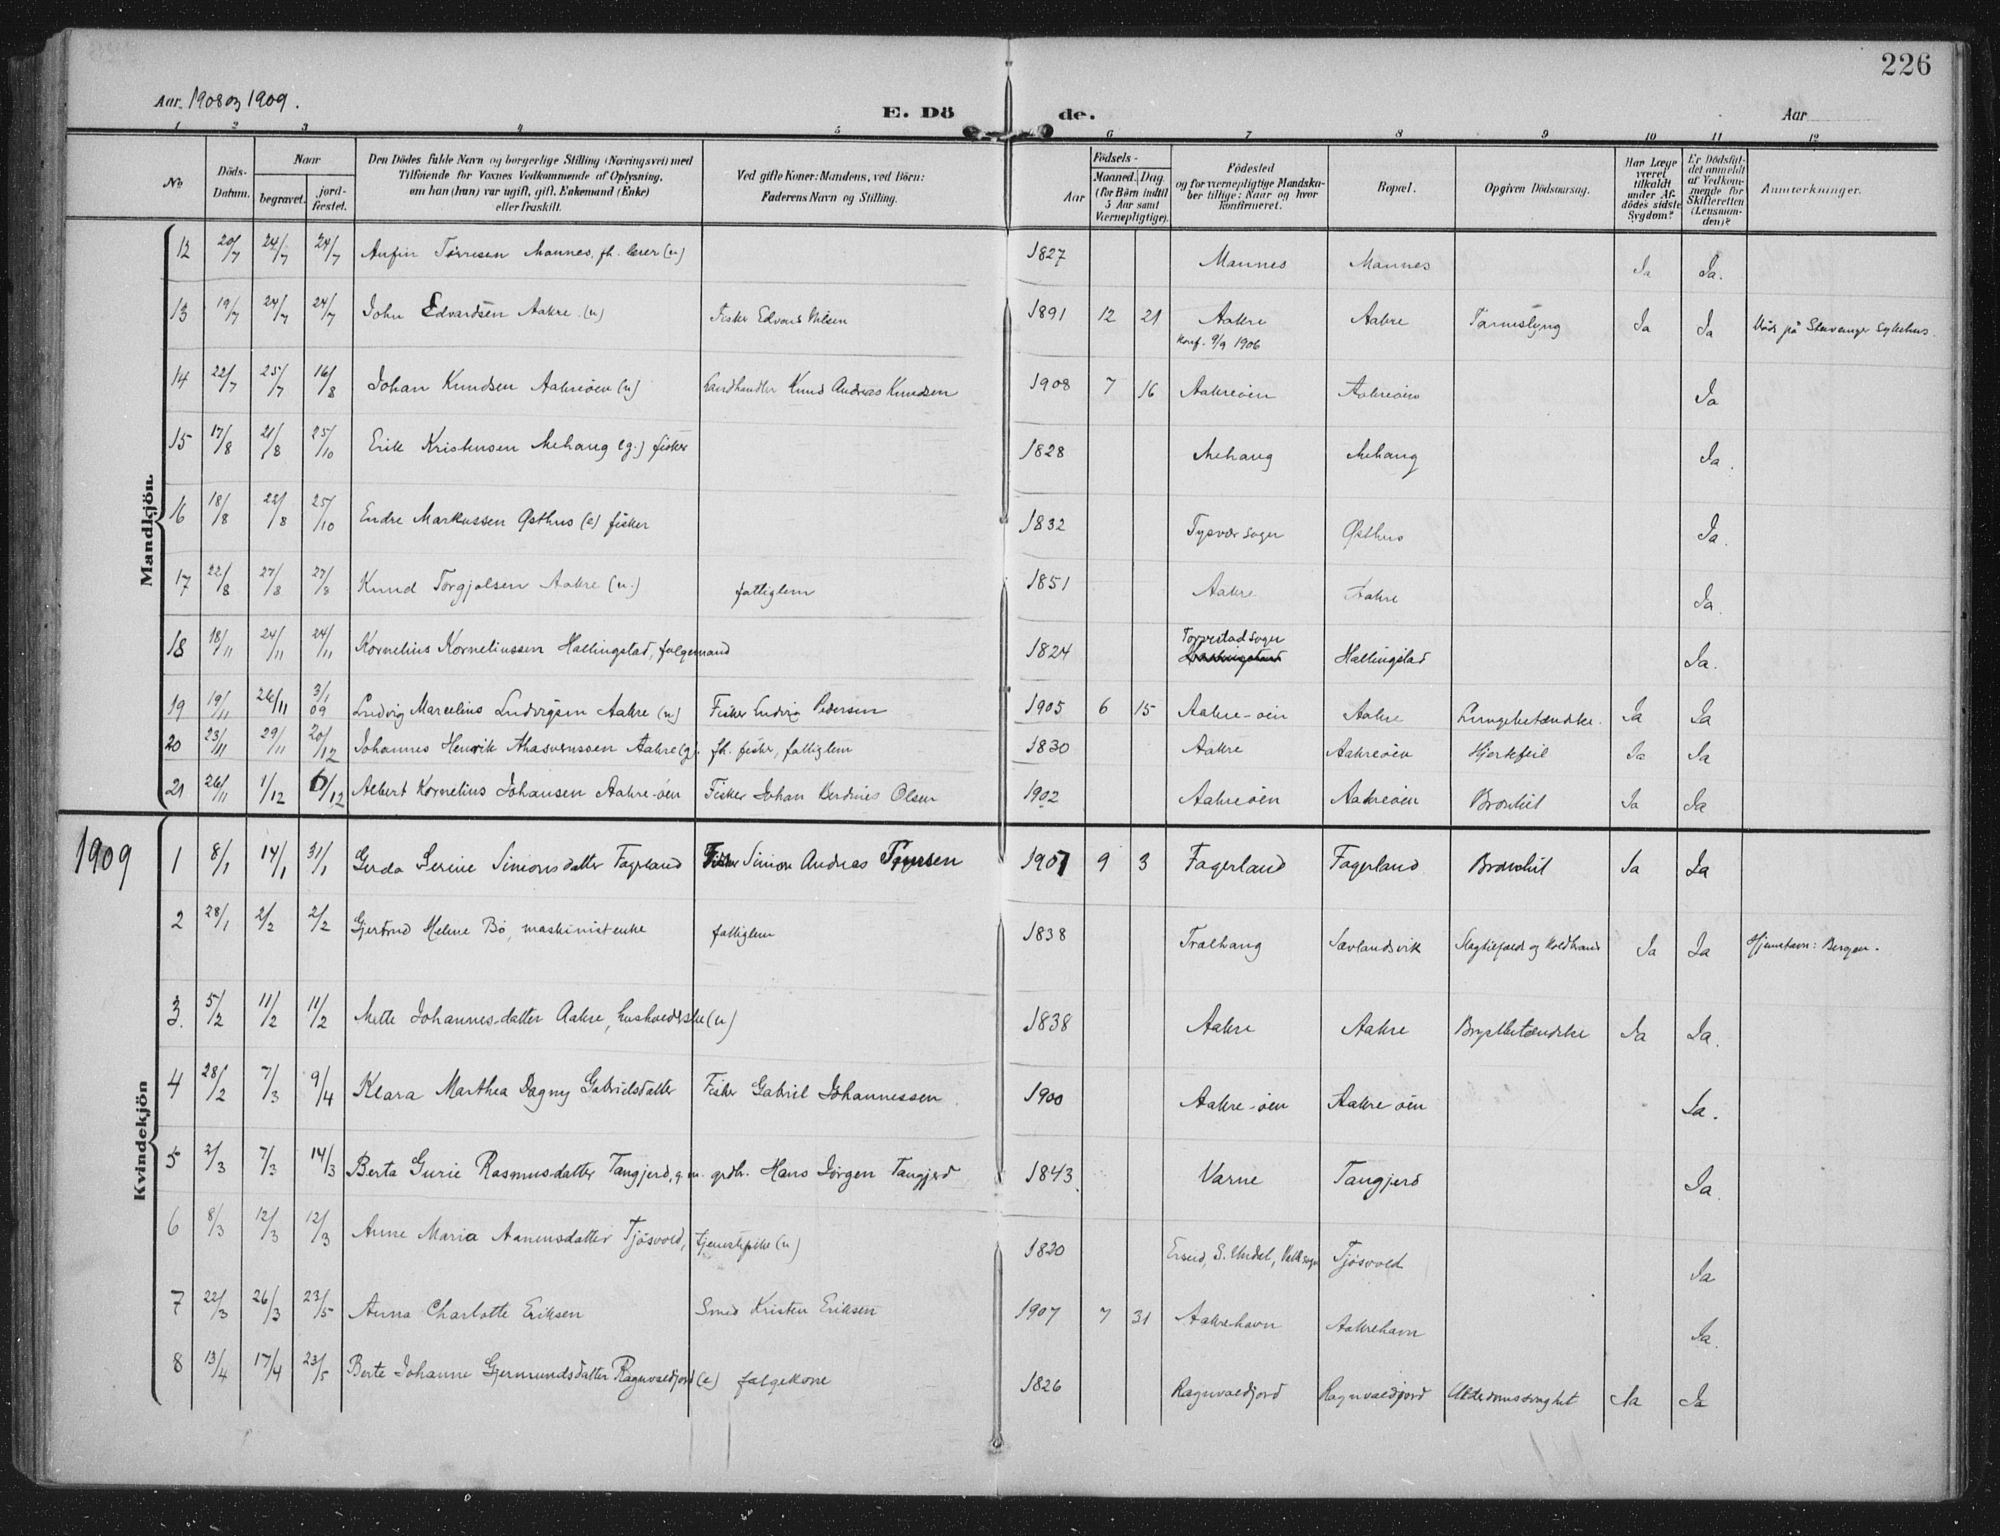 226
Aar 1908 og 1909.
E. Döde.
Aar
1 2 3 4 5 6 7 8 9 10 11 12
No
Döds-Datum.
Naar
begravet.
jord-fæstet.
Den Dödes fulde Navn og borgerlige Stilling (Næringsvei) med
Tilföiende for Voxnes Vedkommende af Oplysning,
om han (hun) var ugift, gift, Enkemand (Enke)
eller fraskilt.
Ved gifte Koner: Mandens, ved Börn:
Faderens Navn og Stilling.
Födsels-
Aar
Maaned. Dag
(for Börn indtil
5 Aar samt
Værnepligtige).
Födested
og for værnepligtige Mandska-
ber tillige: Naar og hvor
konfirmeret.
Bopæl.
Opgiven Dödsaarsag.
Har Læge
været
tilkaldt
under Af-
dödes sidste
Sygdom?
Er Dödsfal-
det anmeldt
af Vedkom-
mende for
Skifteretten
(Lensman-
den)?
Anmærkninger.
Mandkjön.
12 20/7 24/7 24/7 Anfin Tørresen Mannes, fh. læser (u) 1827 Mannes Mannes Ja Ja.
13 19/7 24/7 24/7 John Edvardsen Aakre (u) Fisker Edvard Nilsen 1891 12 21 Aakre Aakre Tarmslyng Ja Ja Død på Stavanger sykehus.
konf. 9/9 1906
14 22/7 25/7 16/8 Johan Knudsen Aakreøen (u) Landhandler Knud Andreas Knudsen 1908 7 16 Aakreøen Aakreøen Ja
15 17/8 21/8 25/10 Erik Kristensen Mehaug (g.) fisker 1828 Mehaug Mehaug Ja.
16 18/8 22/8 25/10 Endre Markussen Østhus (e) fisker 1832 Tysvær sogn Østhus Ja.
17 22/8 27/8 27/8 Knud Aakre (u.) fattiglem 1851 Aakre Aakre Ja.
18 18/11 24/11 24/11 Kornelius Korneliussen Hallingstad, folgemand 1824 Torvestad sogn Hallingstad Ja.
19 19/11 26/11 3/1 09 Ludvig Marcelius Ludvigsen Aakre (u) Fisker Ludvig Pedersen 1905 6 15 Aakre-øen Aakre Lungebetændelse. Ja Ja
20 23/11 29/11 20/12 Johannes Henrik Ahasverussen Aakre (g). fh. fisker, fattiglem 1830 Aakre Aakreøen Hjertefeil Ja Ja
21 26/11 1/12 6/12 Albert Kornelius Johansen Aakre-øen Fisker Johan Berdines Olsen 1902 Aakreøen Aakreøen Bronkit Ja Ja
1909
Kvindekjön
1 8/1 14/1 31/1 Gerda Serine Simonsdatter Fagerland Fisker Simon Andreas 1907 9 3 Fagerland Fagerland Bronkit Ja Ja
2 28/1 2/2 2/2 Gjertrud Helene Bø, maskinistenke fattiglem 1838 Tralhaug Sævlandsvik Slagtilfælde og koldbrand Ja Ja Hjemstavn: Bergen.
3. 5/2 11/2 11/2 Mette Johannesdatter Aakre, husholderske (u) 1838 Aakre Aakre Brystbetændelse Ja Ja.
4 28/2 7/3 9/4 Klara Marthea Dagny Gabrielsdatter Fisker Gabriel Johannessen 1900 Aakre-øen Aakre-øen Ja.
5 2/3 7/3 14/3 Berta Gurie Rasmusdatter Tangjerd, g.m. grdbr. Hans Jørgen Tangjerd 1843. Varne Tangjerd Ja.
6 8/3 12/3 12/3 Anne Maria Aanensdatter Tjøsvold, tjenestepike (u) 1820 S. Undal, Tjøsvold Ja
7 22/3 26/3 23/5 Anna Charlotte Eriksen Smed Kristen Eriksen 1907 7 31 Aakrehavn Aakrehavn Ja.
8 13/4 17/4 23/5 Berte Johanne Gjermundsdatter Ragnvaldjord (e) folgekone 1826 Ragnvaldjord Ragnvaldjord Alderdomssvaghet Ja Ja